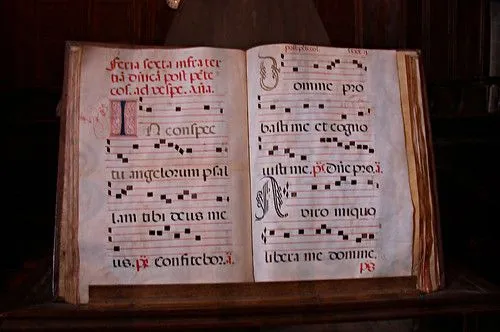 feria sexta infra ter
tiā dn̄icā post pēte
cos. ad vespe. Aña.
IN conspec
tu angelorum psal
lam tibi deus me
us. ps̄. Confitebor. ā.
post pēt cos.
Domine pro
basti me et cogno
uisti me. ps̄. Dn̄e pro. ā.
A viro iniquo
libera me domine.
ps